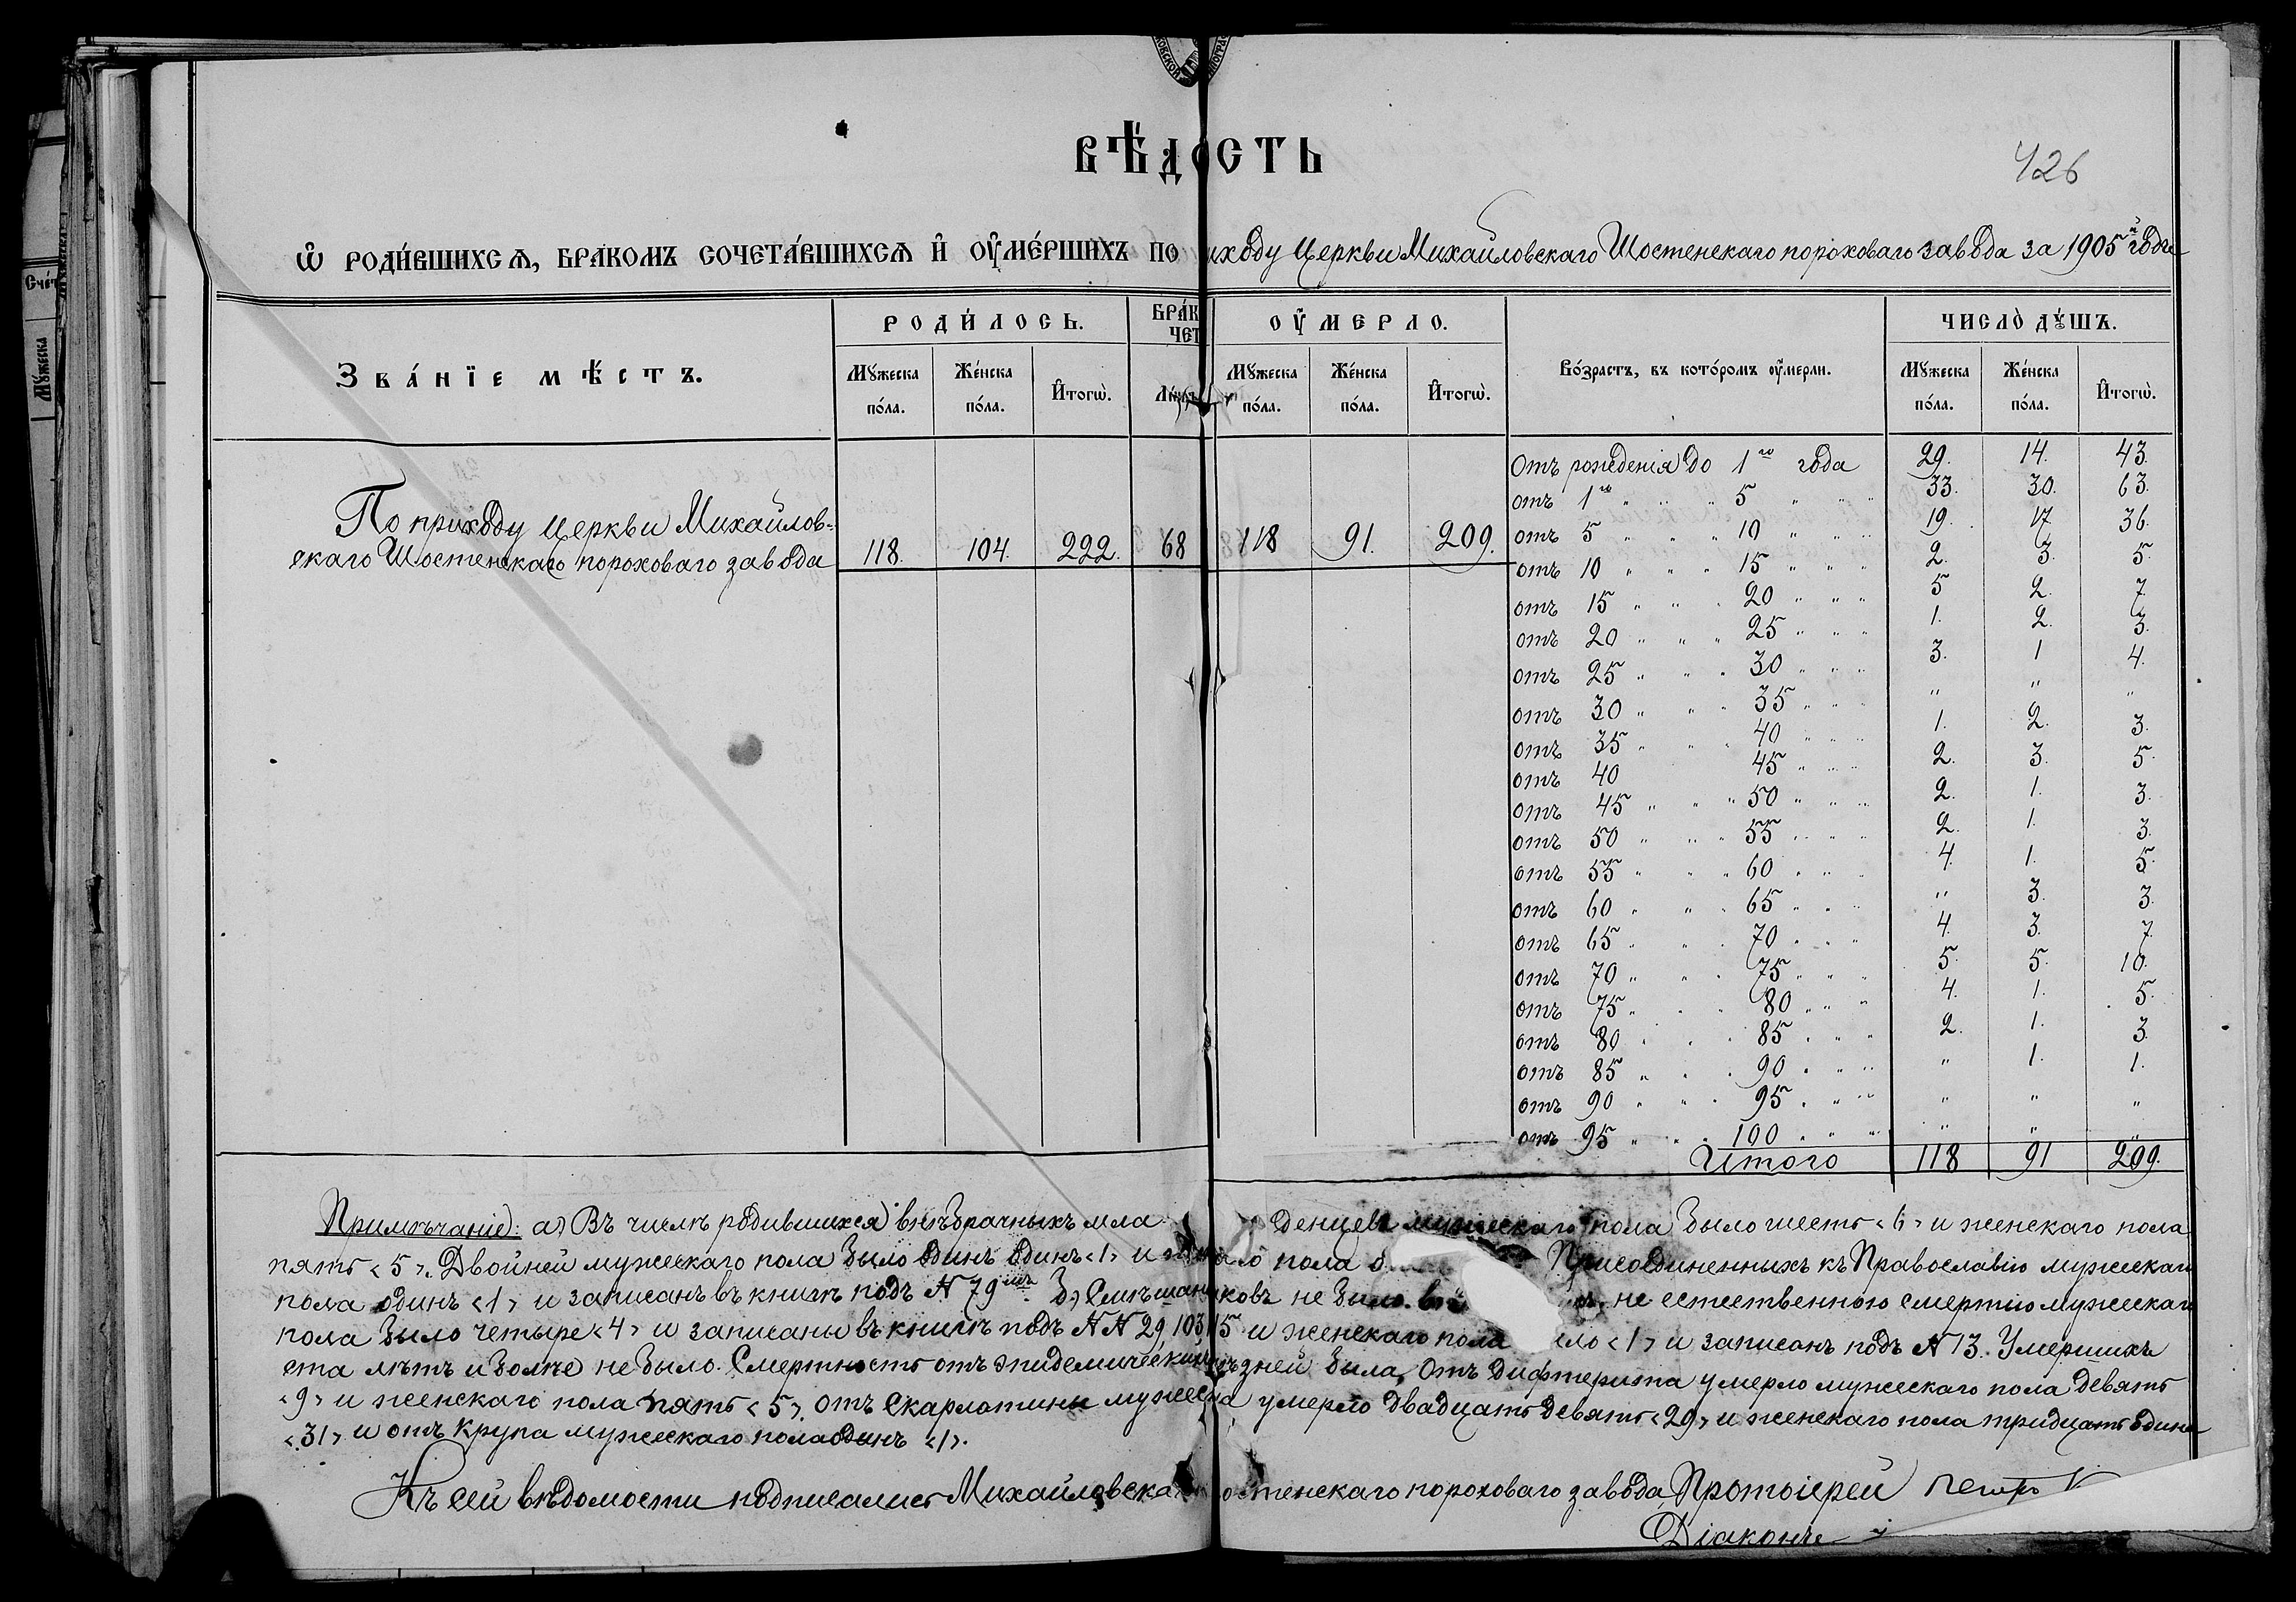 ВѢДОСТЬ
426
Ѡ РОДИ́ВШИХСѦ, БРАКОМЪ СОЧЕТА́ВШИХСѦ И҆ ОУ҆МЕ́РШИХЪ ПО иходу Церкви Михайловскаго Шостенскаго пороховаго завода за 1905й годъ
Зва́нїе мѣ́стъ.
РОДИ́ЛОСЬ.
БРАК
ЧЕТ
ОУ҆МЕРЛО.
Во́зрастъ, въ кото́ромъ оу҆мерли.
ЧИСЛО̀ ДꙊ́ШЪ.
Мꙋжеска по́ла. Же́нска по́ла. И҆тогѡ̀.
Мꙋжеска по́ла. Же́нска по́ла. И҆тогѡ̀.
Мꙋжеска по́ла. Же́нска по́ла. И҆тогѡ̀.
По приходу Церкви Михайлов-
скаго Шостенскаго пороховаго завода 118. 104. 222. 68 118 91. 209.
Отъ рожденія до 1го года 29. 14. 43.
отъ 1го " " " 5 " " " 33. 30. 63.
отъ 5 " " " 10 " " " 19. 17. 36.
отъ 10 " " " 15 " " " 2. 3. 5.
отъ 15 " " " 20 " " " 5 2. 7.
отъ 20 " " " 25 " " " 1. 2. 3.
отъ 25 " " " 30 " " " 3. 1 4.
отъ 30 " " " 35 " " " " " "
отъ 35 " " " 40 " " " 1. 2. 3.
отъ 40 45 " " " 2. 3. 5.
отъ 45 " " " 50 " " " 2. 1. 3.
отъ 50 " " " 55 " " " 2. 1. 3.
отъ 55 " " " 60 " " " 4. 1. 5.
отъ 60 " " " 65 " " " " 3. 3.
отъ 65 " " " 70 " " " 4. 3. 7.
отъ 70 " " " 75 " " " 5. 5. 10.
отъ 75 " " " 80 " " " 4. 1. 5.
отъ 80 " " " 85 " " " 2. 1. 3.
отъ 85 " " " 90 " " " " 1. 1.
отъ 90 " " " 95 " " " " " "
отъ 95 " " " 100 " " " " " "
Итого 118 91 209.
Примѣчаніе: а) Въ числѣ родившихся внѣбрачныхъ мла денцевъ мужескаго пола было шесть <6> и женскаго пола
пять <5>. Двойней мужескаго пола было одинъ одинъ <1> и пола Присоединенныхъ къ Православію мужескаго
пола одинъ <1> и записанъ въ книгѣ подъ № 79мъ. б) не было. не естественною смертію мужескаго
пола было четыре <4> и записаны въ книгѣ подъ №№ 29, 103, 115 и женскаго пола ло <1> и записанъ подъ № 13. Умершихъ
ста лѣтъ и болѣе не было. Смертность отъ эпидемическихъ зней была, Отъ дифтерита умерло мужескаго пола девять
<9> и женскаго пола пять <5>, отъ скарлатины мужеска умерло двадцать девять <29> и женскаго пола тридцать одинъ
<31> и отъ крупа мужескаго пола одинъ <1>.
Къ сей вѣдомости подписались Михайловска остенскаго пороховаго завода, Протоіерей Петръ
Діаконъ